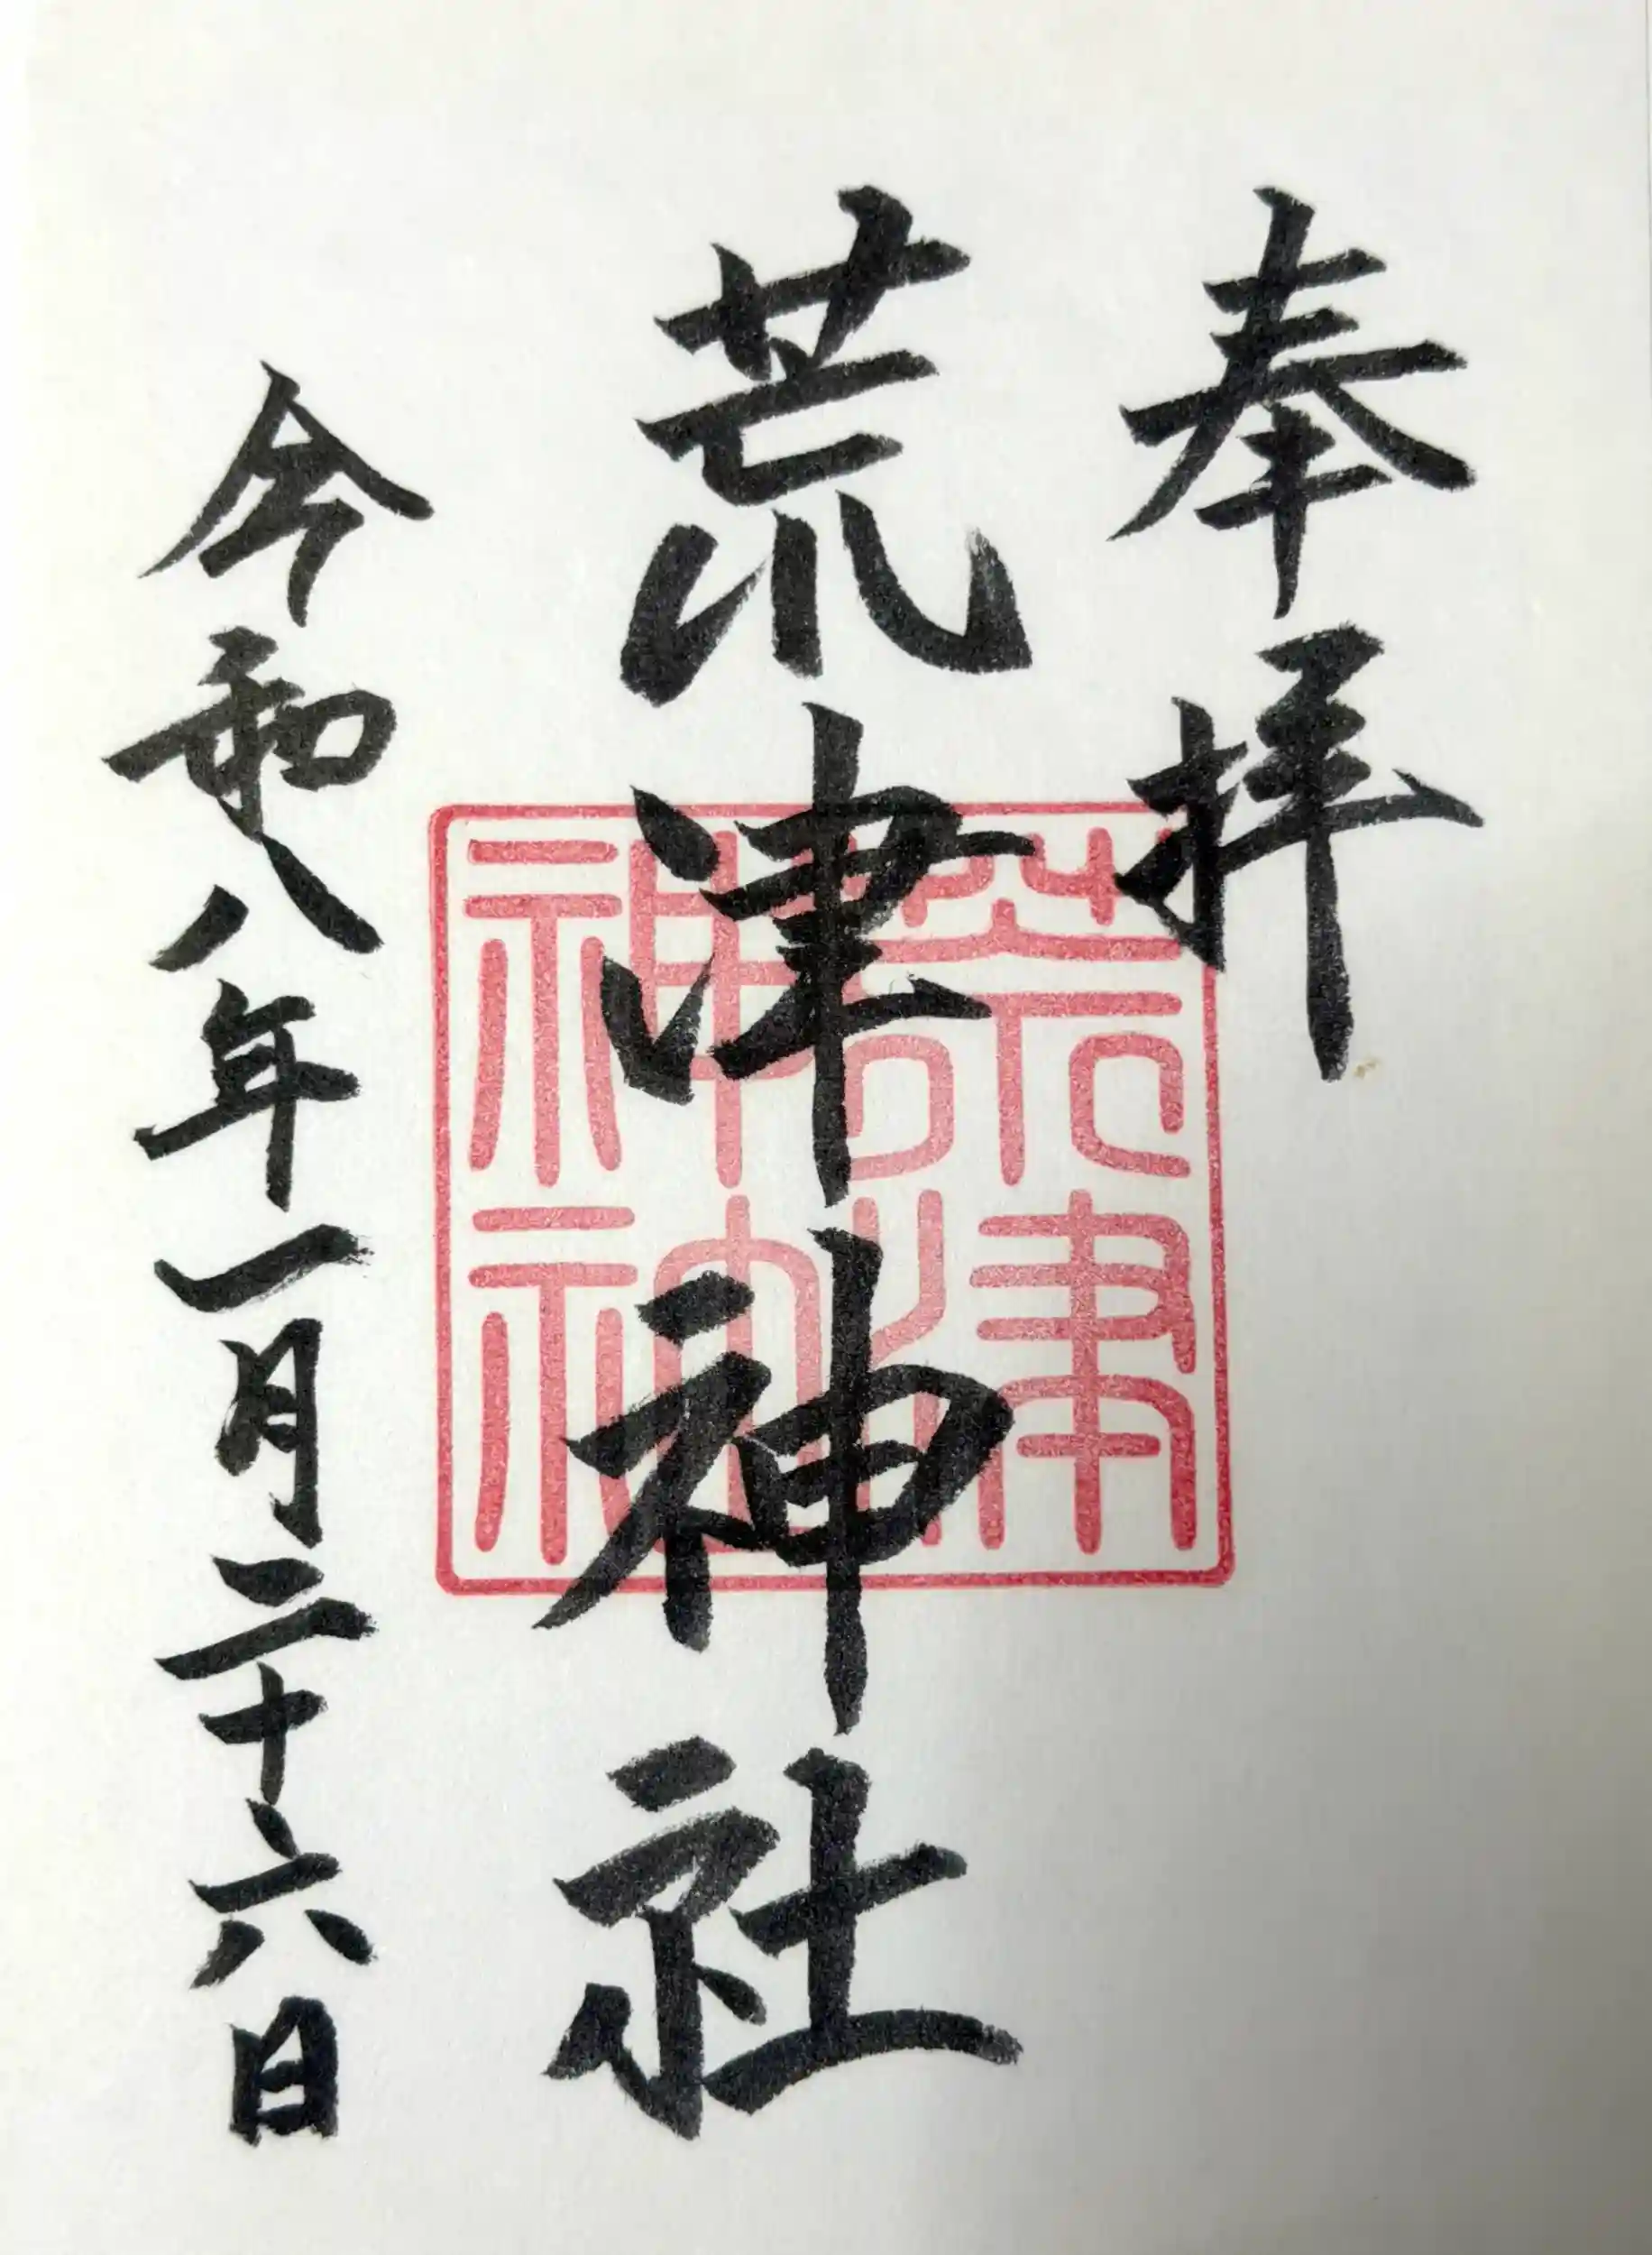 奉拝
荒津神社
令和八年一月二十六日
荒津
神